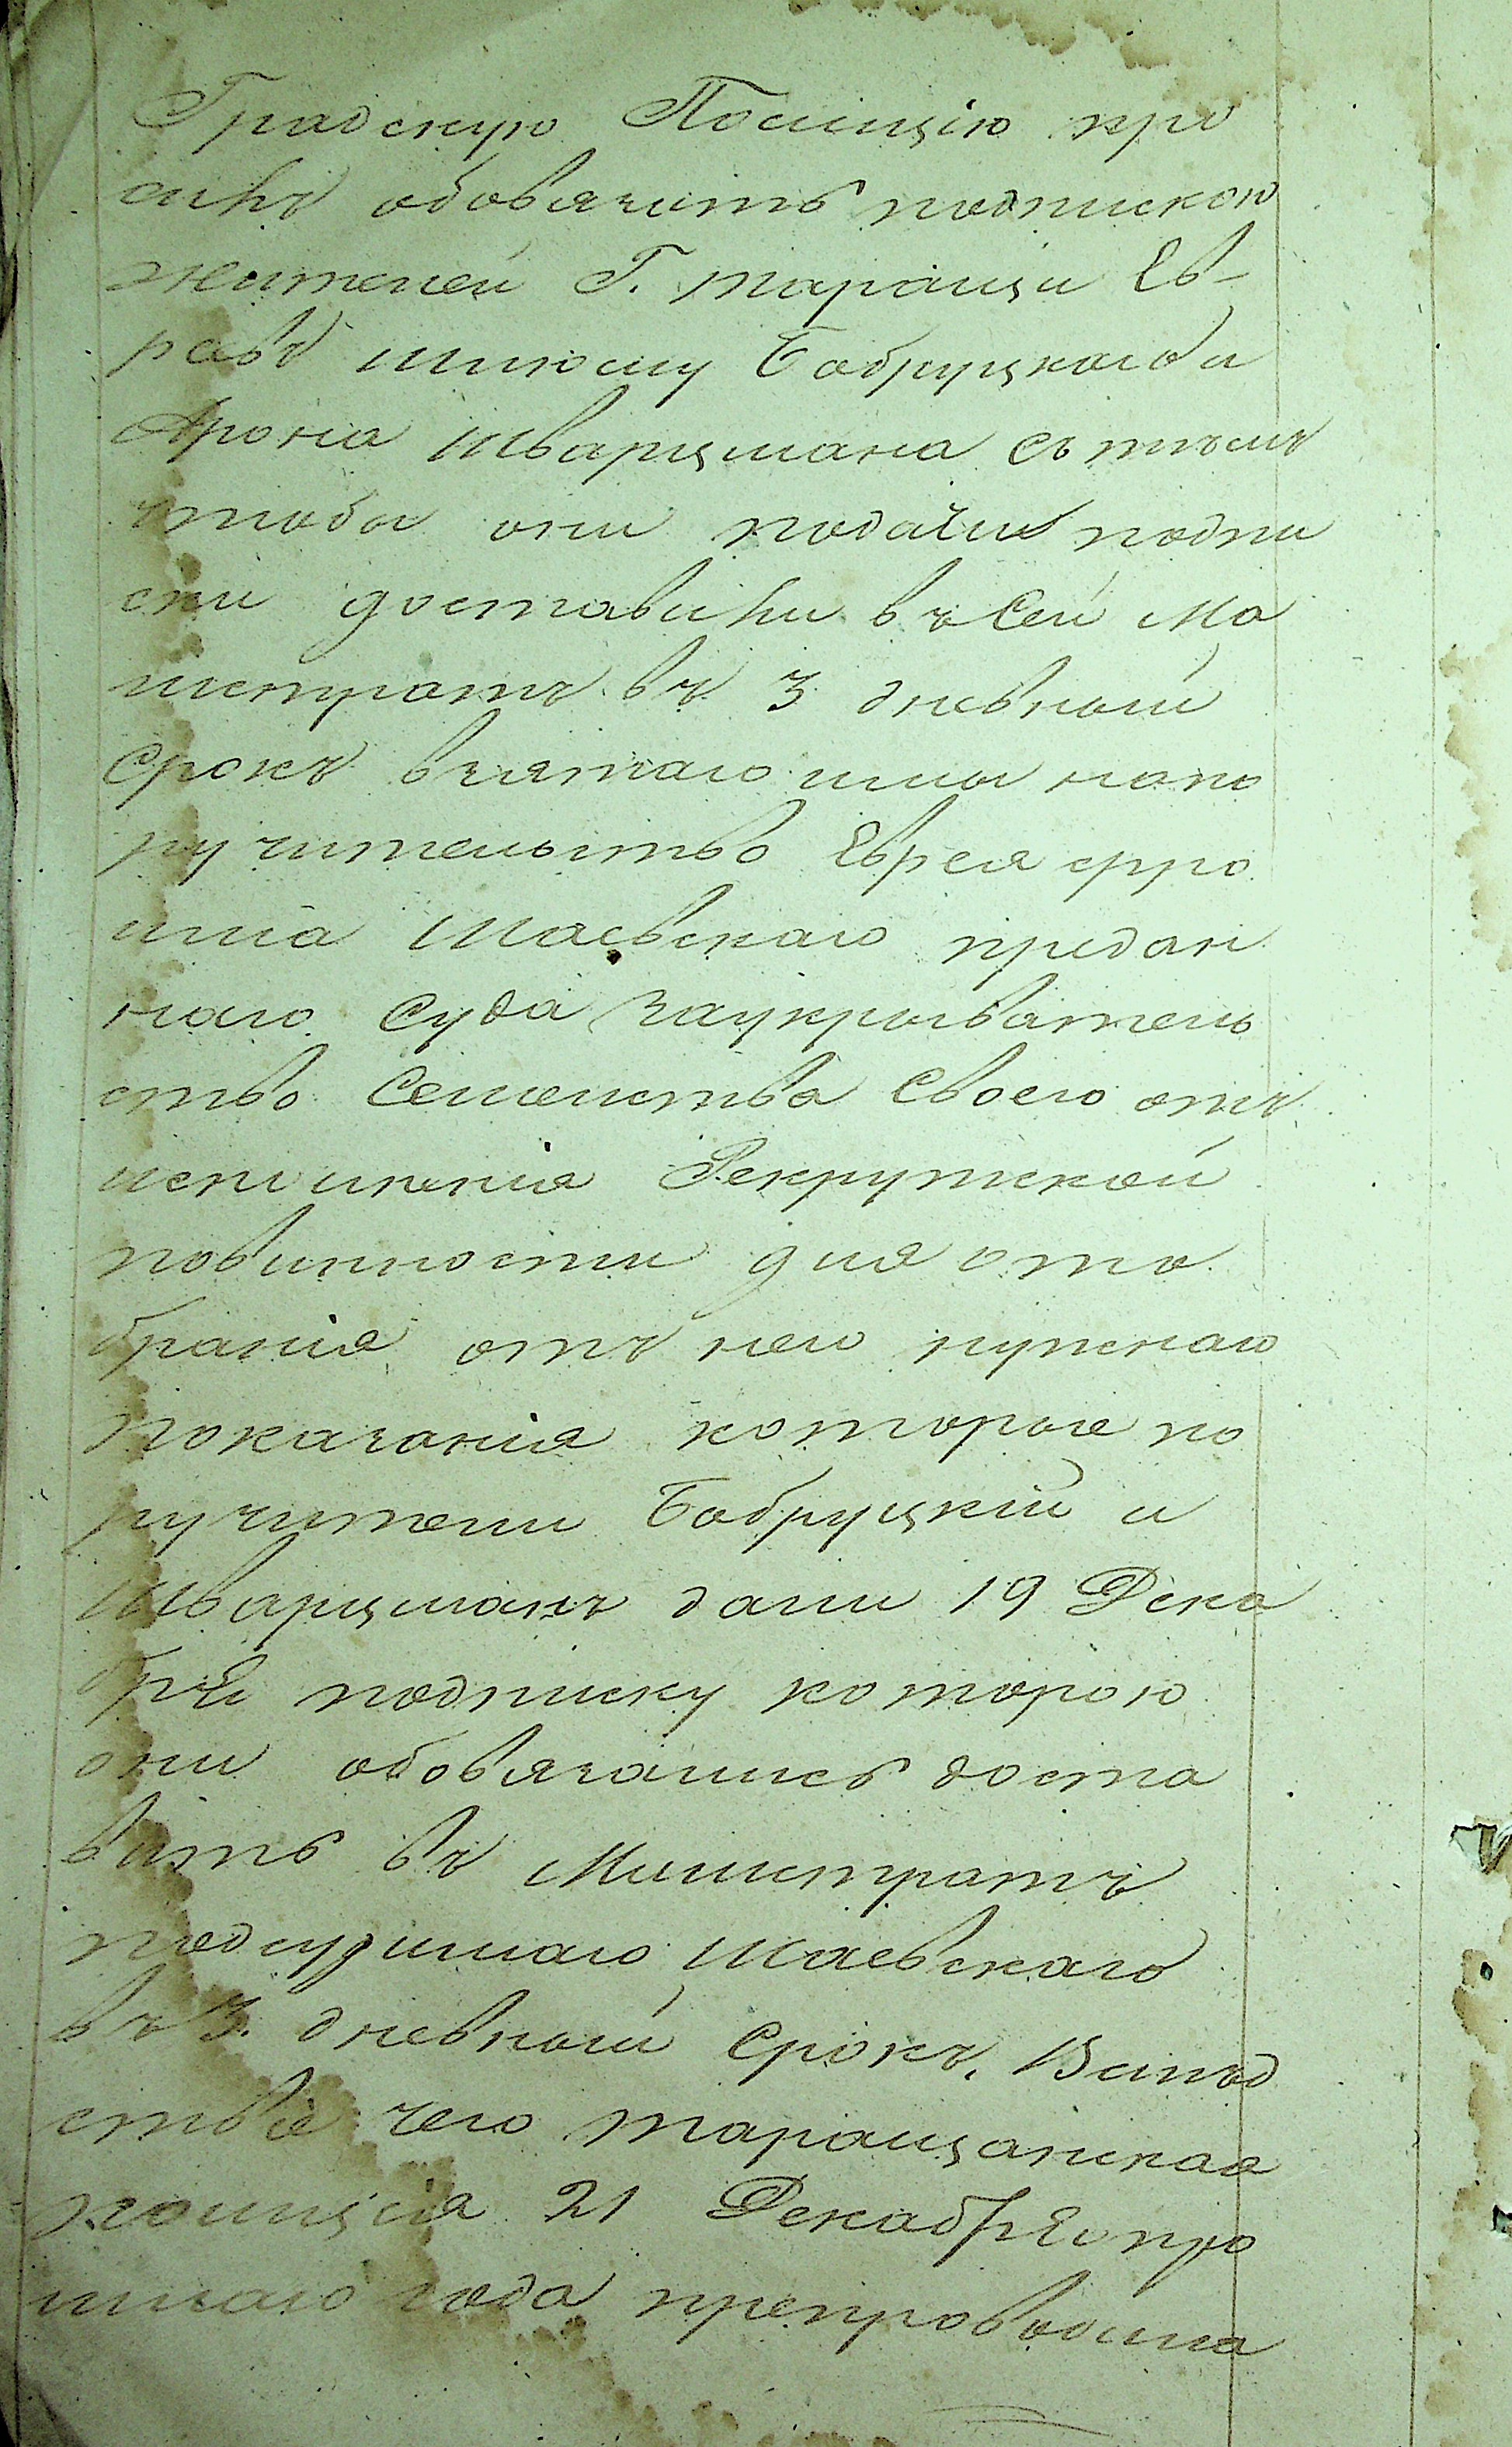 Градскую Полицію про
силъ обовязать подпискою
жителей Г. Таращи Ев-
реевъ Шлюому Бобруцкаго и
Арона Шварцмана съ тѣмъ
чтобы они подачи подпи
ски доставили въ Сей Ма
гистратъ въ 3 дневный
Срокъ взятаго ими на по
ручительство Еврея
Шаевскаго предан
наго Суда за укрыватель
ство Семейства Своего отъ
исполненія Рекрутской
повинности для ото
бранія отъ него нужнаго
показанія которые по
ручители Бобруцкій и
Шварцманъ дали 19 Дека
бря подписку которою
они обовязались доста
вить въ Магистратъ
подсудимаго Шаевскаго
въ 3. дневный Срокъ, Вслѣд
ствіе чего Таращанская
полиція 21 Декабря про
шлаго года препроводила